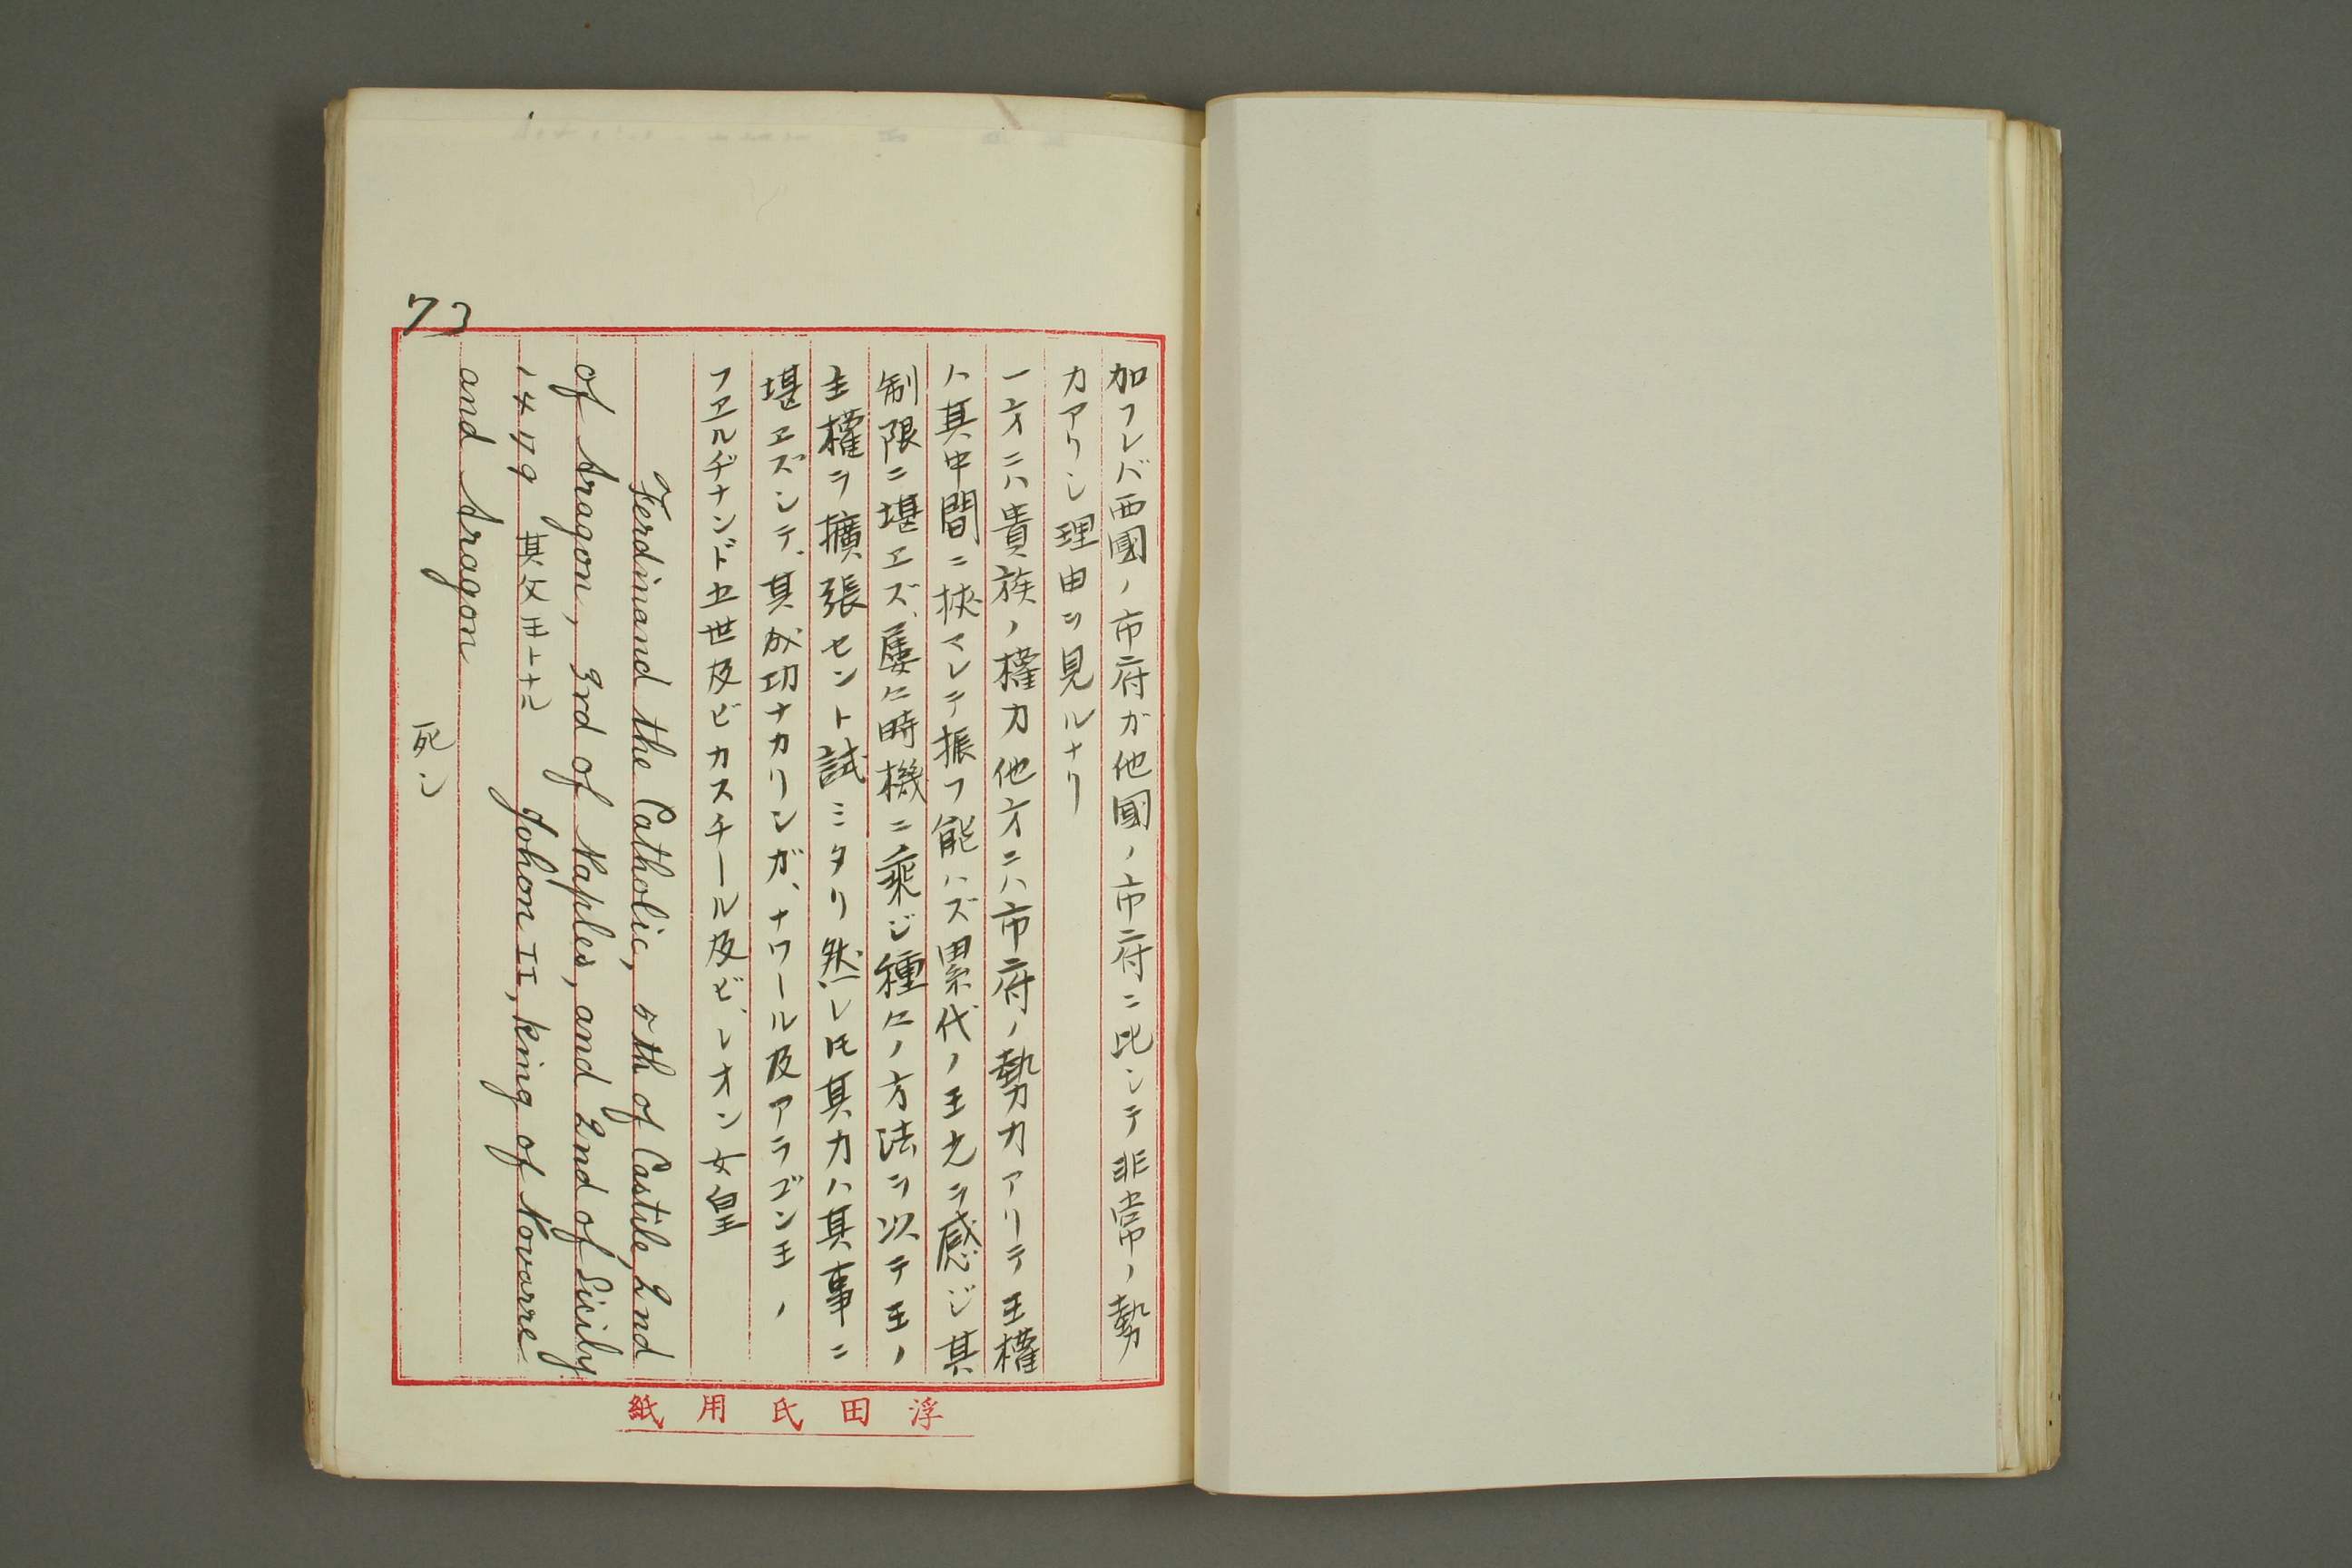 加フレバ西國ノ市府ガ他國ノ市府ニ比シテ非常ノ勢
力アリシ理由ヲ見ルナリ
一方ニハ貴族ノ權力他方ニハ市府ノ勢力アリテ王權
ハ其中間ニ挾マレテ振フ能ハズ累代ノ王尤ヲ感ジ其
制限ニ堪エズ、屢々時機ニ乘ジ種々ノ方法ヲ以テ王ノ
主權ヲ擴張セント試ミタリ然レ𪜈其力ハ其事ニ
堪エズシテ、其成功ナカリシガ、ナワール及アラゴン王ノ
フエルヂナンド五世及ビカスチール及ビ、レオン女皇
Ferdinand the Catholic, 5th of Castile, 2nd
of Aragon, 3rd of Naples, and 2nd of Sicily
1479 其父王トナル Johon II, king of Novarre
and Aragon
死シ
73
浮田氏用紙